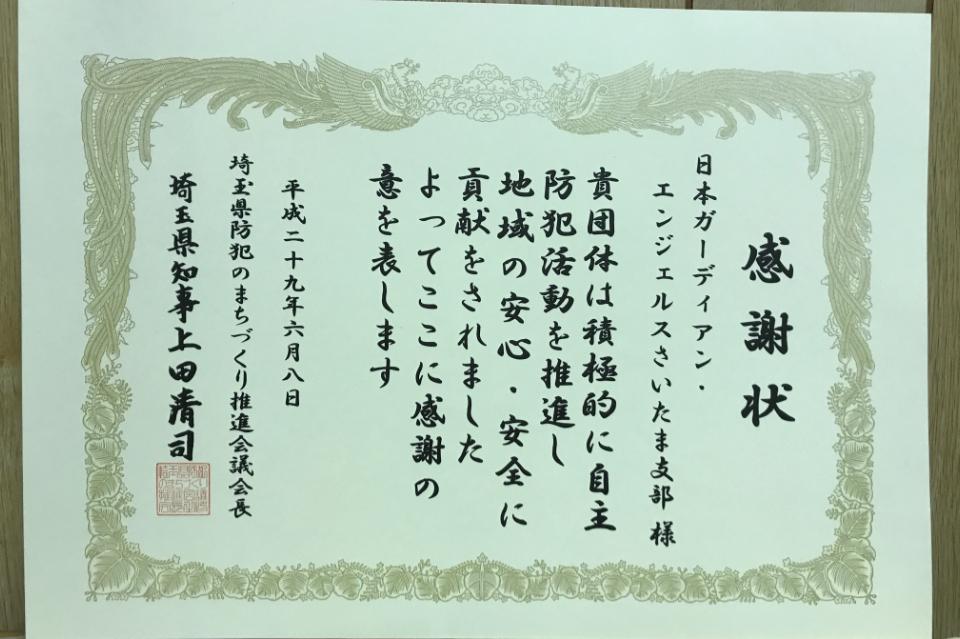 感謝状
日本ガーディアン・
エンジェルスさいたま支部 様
貴団体は積極的に自主
防犯活動を推進し
地域の安心・安全に
貢献をされました
よってここに感謝の
意を表します
平成二十九年六月八日
埼玉県防犯のまちづくり推進会議会長
埼玉県知事上田清司